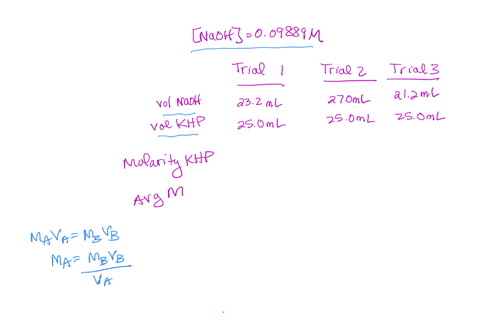 [NaOH] = 0.09889M
Trial 1 Trial 2 Trial 3
vol NaOH 23.2mL 270mL 21.2mL
vol KHP 25.0mL 25.0mL 25.0mL
Molarity KHP
Avg M
MAVA = MBVB
MA = MBVB
VA